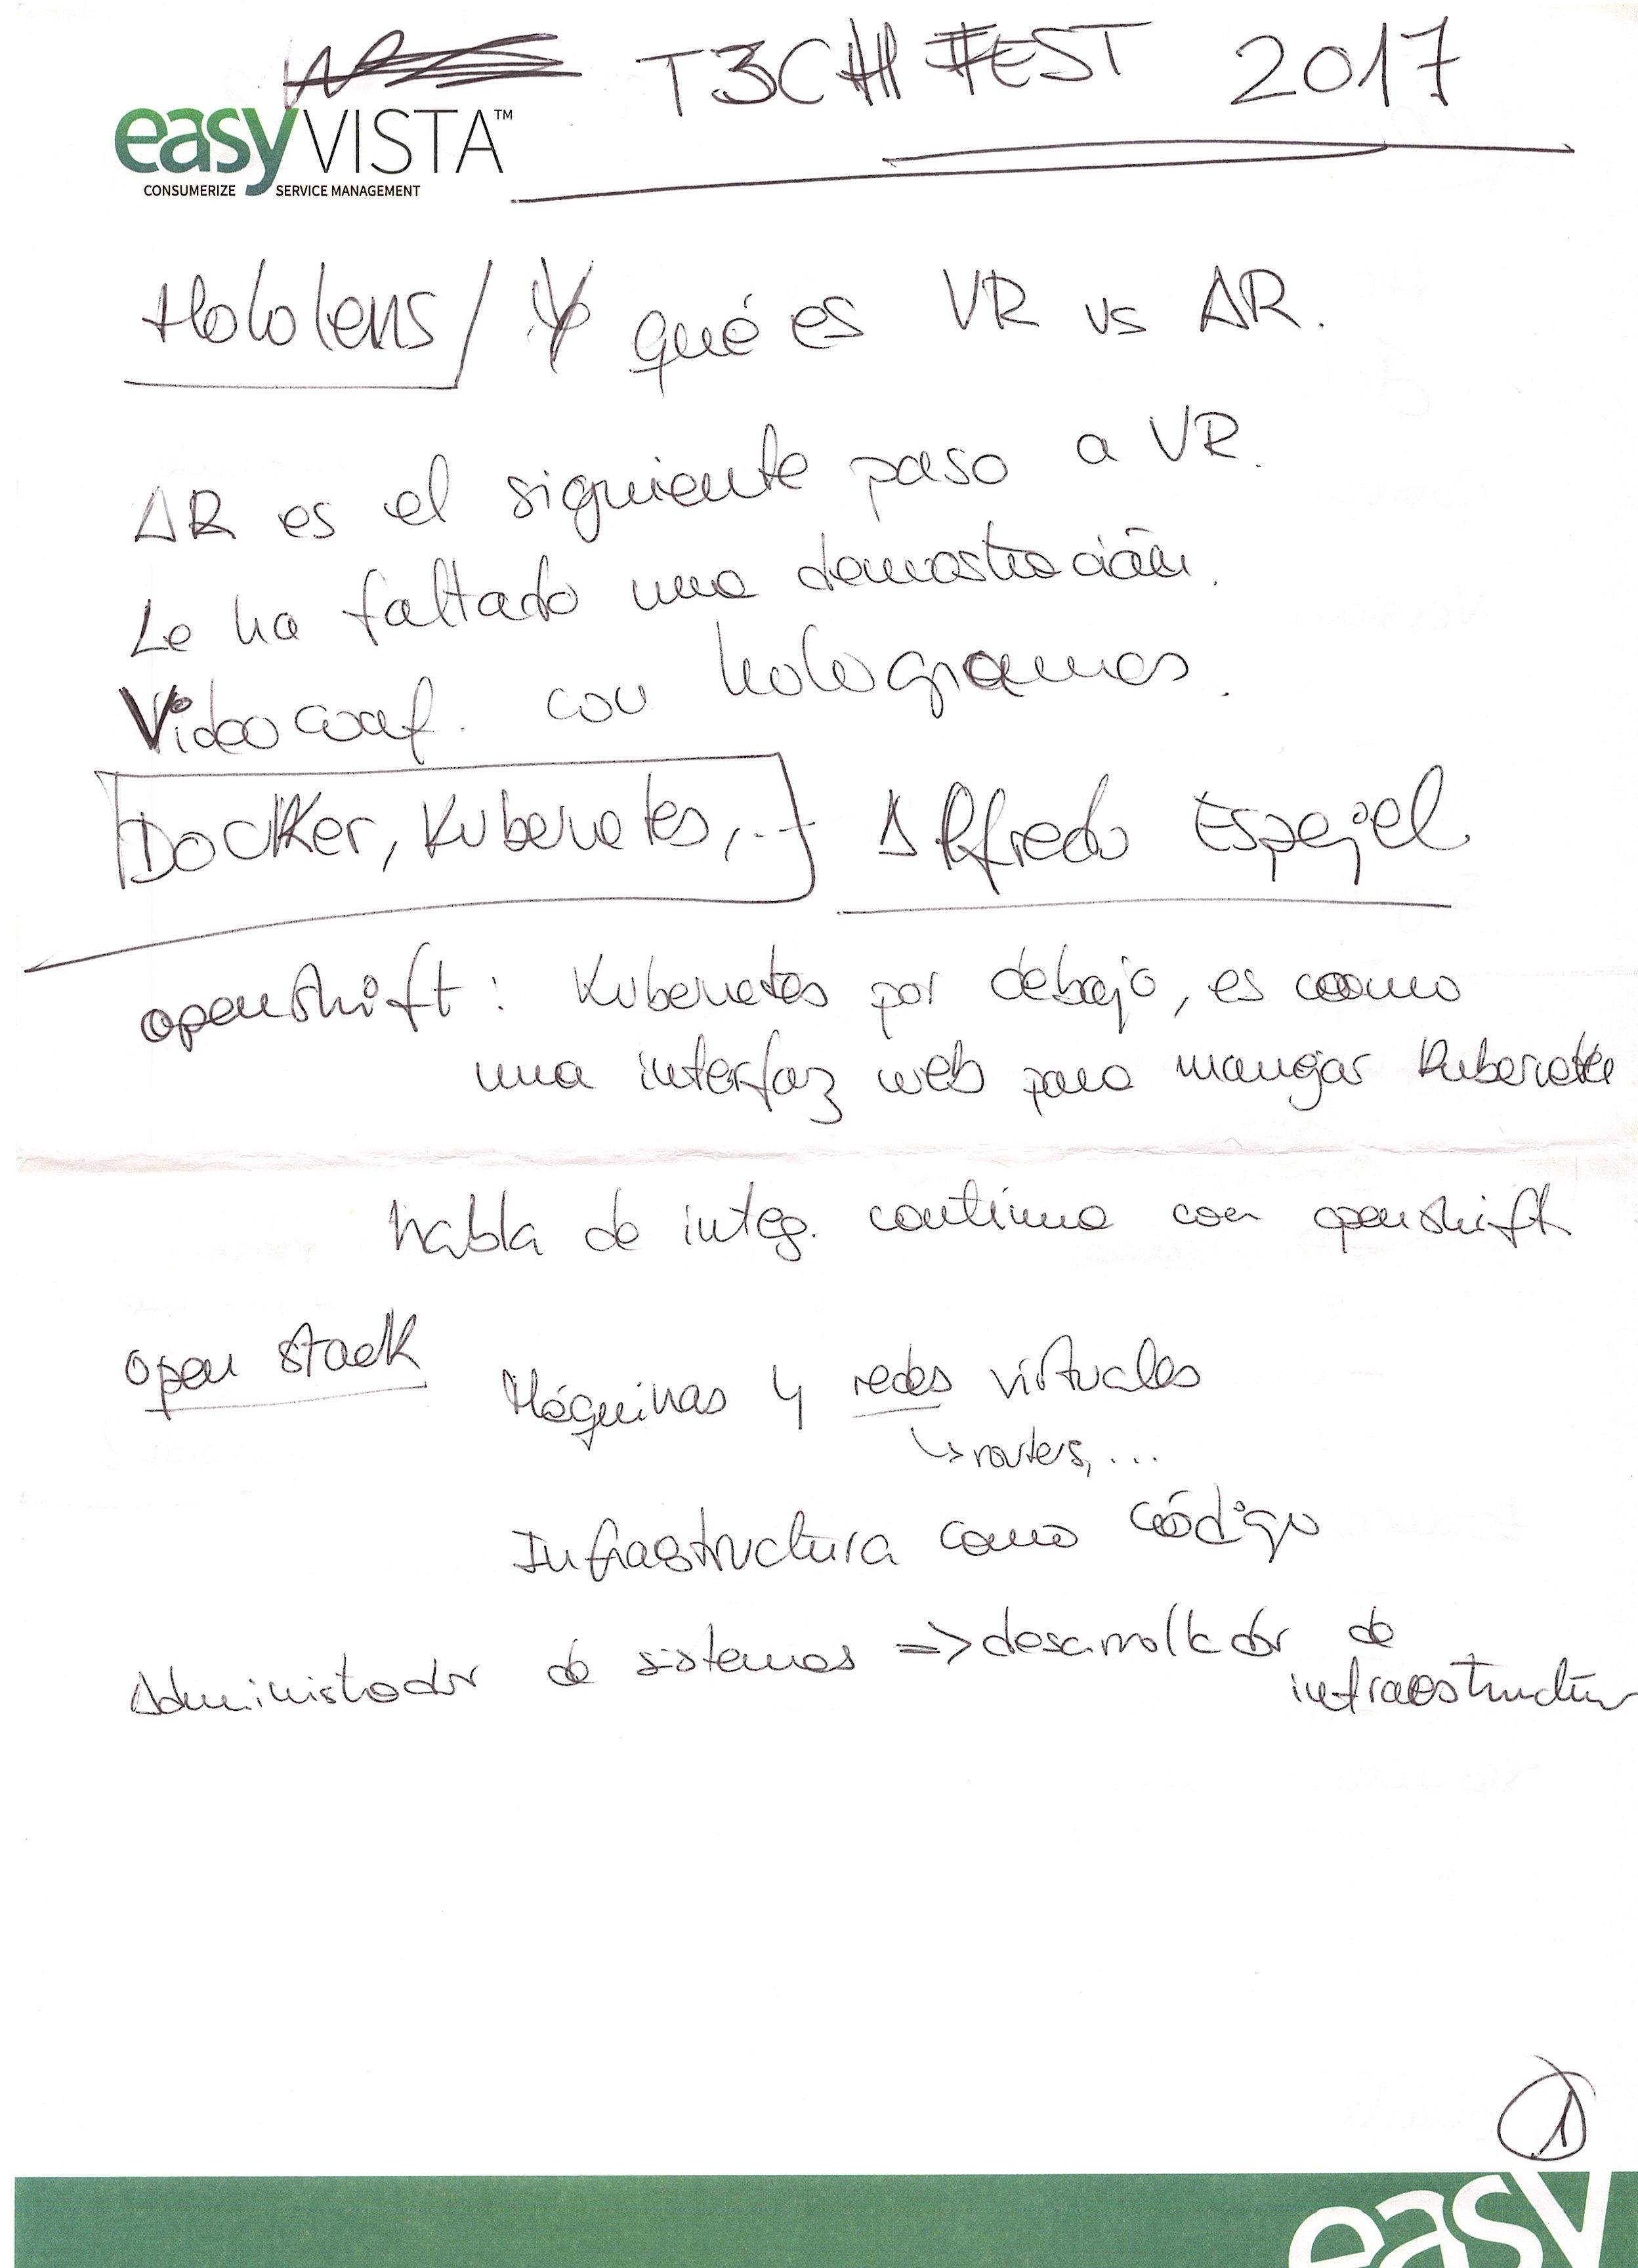 T3CHFEST 2017
easyVISTA™
CONSUMERIZE SERVICE MANAGEMENT
Hololens / qué es VR vs AR.
AR es el siguiente paso a VR.
Le ha faltado una demostración.
Videoconf. con hologramas.
Docker, Kubernetes, ... Alfredo Espejel
openshift: Kubernetes por debajo, es como
una interfaz web para manejar Kubernetes
habla de integ. continua con openshift
open stack Máquinas y redes virtuales
↳ routers, ...
Infrastructura como código
Administrador de sistemas => desarrollador de
infraestructura
1
easy